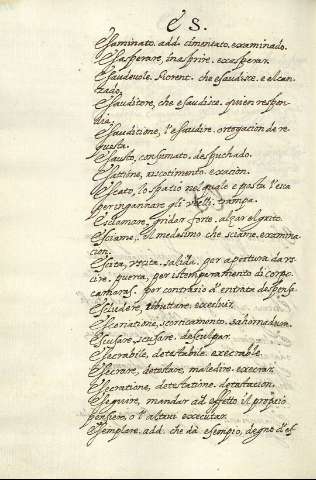 E S.
Esaminato. add. cimentato. exxaminado.
Esasperare, inasprire. exsasperar.
Esaudevole. fiorent. che esaudisce. e alcan-
zado,
Esauditore, che esaudisce. quien respon-
dia,
Esauditione, l'esaudire. ortogacion de re
questa.
Esausto, consumato. despuchado.
Esattione, riscotimento. exacion.
Escato, lo spatio nel quale è posta l'esca
per ingannare gli ucelli. trampa.
Esclamare, gridar forte. alçar el grito.
Esciame, il medesimo che sciame. examina
cion.
Escita, uscita. salida. per apertura da us-
cire. puerta, per istemperamento di corpo.
camaras. per contrario d'entrata despensa
Escludere, ributtare. excluir.
Escusare, scusare. desculpar.
Esecrabile, detestabile. execrable.
Esecrare, detestare, maledire. execrar.
Esecratione, detestatione. detestacion.
Eseguire, mandar ad effetto il proprio
pensiere, o l'altrui executar.
Esemplare. add. che dà esempio, degno d'es